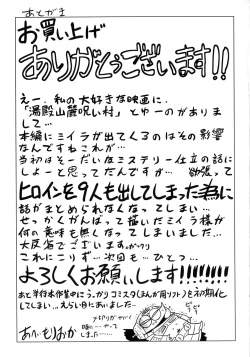 あとがき
お買い上げ
ありがとうございます!!
えー、私の大好きな映画に、
「湯殿山麓呪い村」とゆーのがありま
して…
本編にミイラが出てくるのはその影響
なんですねこれが…
当初はそーだいなミステリー仕立の話に
しよーと思ってたんですが… 欲張って
ヒロインを9人も出してしまった為に
話がまとめられなくなってしまい…
せっかくがんばって描いたミイラ様が
何の意味も無くなってしまいました…
大反省でございます…ガックリ
これにこりず…次回も…ひとつ…
よろしくお願いします!!!!!!!!
あと単行本作業中にうっかりコミスタ(まんが用ソフト)をその初期化
してしまい…えらい目にあいました…
メ切りがヤバく
てしまった……